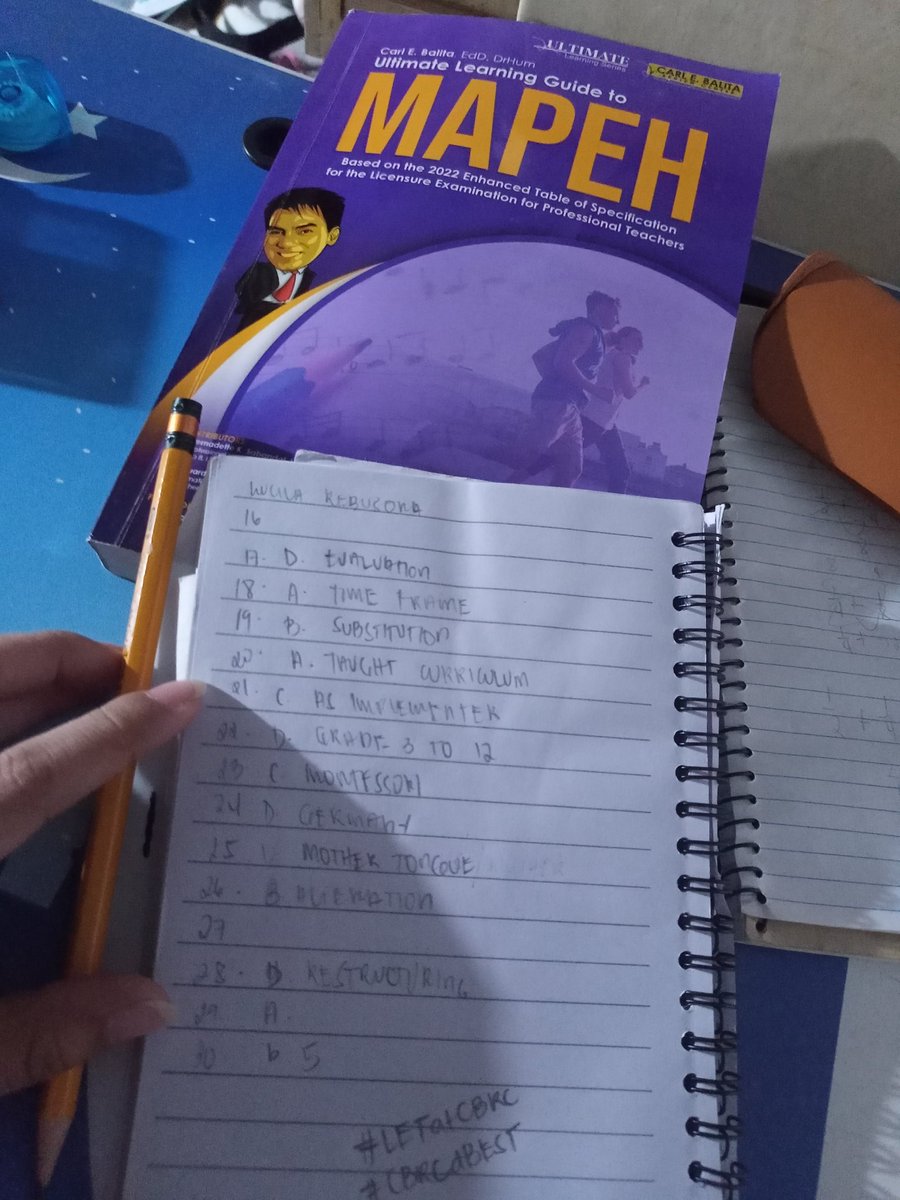 ULTIMATE
Learning Series
CARL E. BALITA
Carl E. Balita, EdD, DrHum
Ultimate Learning Guide to
MAPEH
Based on the 2022 Enhanced Table of Specification
for the Licensure Examination for Professional Teachers
16
D. EVALUATION
18. A. TIME FRAME
19. B. SUBSTITUTION
20. A. TAUGHT CURRICULUM
21. C AS IMPLEMENTER
22. D. GRADE 3 TO 12
23 C MONTESSORI
24 D GERMANY
25 MOTHER TONGUE
26 B ALTERATION
27
28. D. RESTRUCTURING
29 A.
30 b 5
#LETatCBRC
#CBRCdBEST